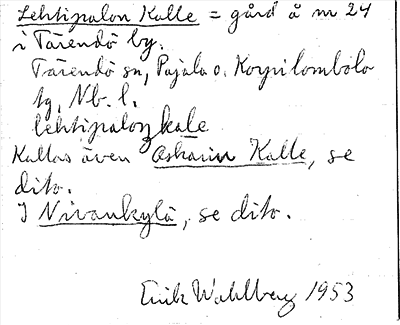 Lehtipalon Kalle = gård å m 24
i Tärendö by.
Tärendö sn, Pajala o. Korpilombolo
tg, Nb. l.
lehtipaloŋ kale
Kallas även Askariin Kalle, se
dito.
I Nivankylä, se dito.
Erik Wahlberg 1953